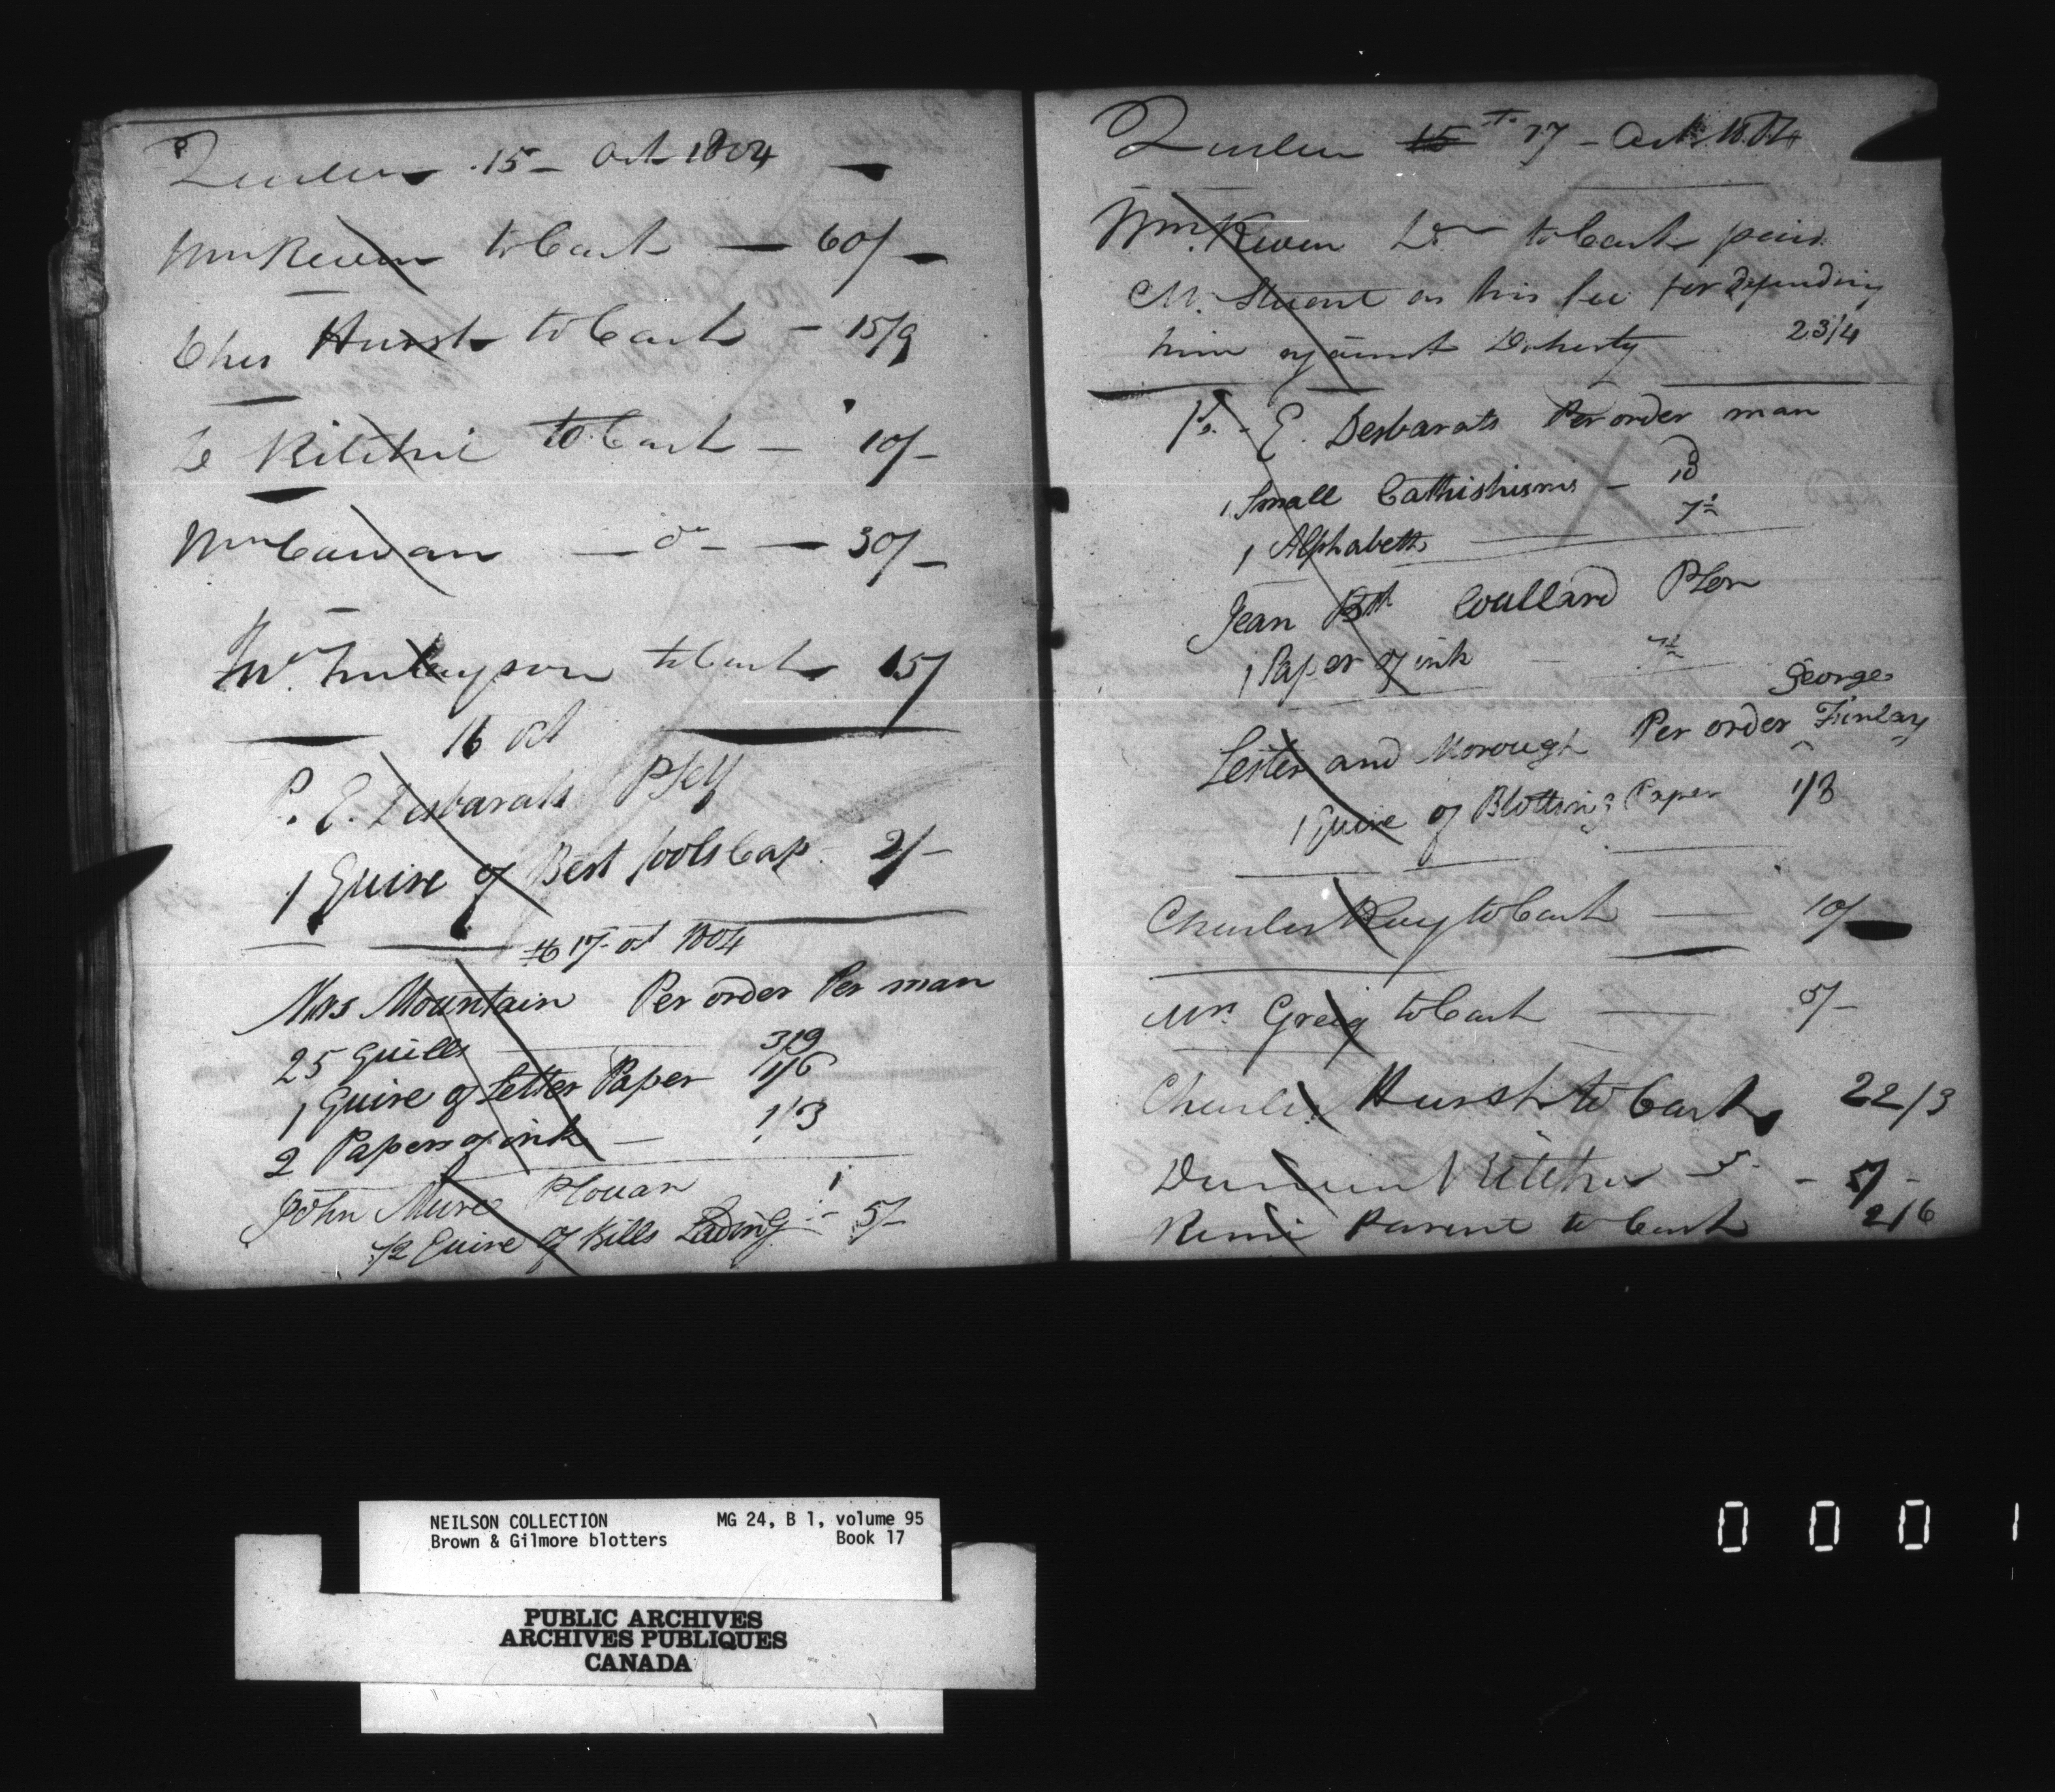 Quebec 15 - Oct 1804
Wm Keven to Cash — 60/-
Chs Hursh to Cash - 15/9
D Ritchie to Cash - 10/-
Wm Cowan — do - — 30/-
Mr. Finlayson to Cash 15/
16 Oct
P. E. Desbarats Pself
1 Quire of Best foolsCap 2/-
16 17 - oct 1804
Mrs Mountain Per order Per man
25 Quills 3/9
1 Quire of Letter Paper 1/6
2 Papers of ink — 1/3
John Mure
1/2 Quire of Bills Lading 5/-
Quebec 15 17 - Oct. 1804
Wm. Keven Dr to Cash paid
Mr. Stuart as his fee for defending
him against Doherty 23/4
P. E. Desbarats Per order man
1 Small Cathishisms - 10
1 Alphabeth 7½
Jean Bth Coullard PSon
1 Paper of ink - 7½
George
Lester and Morough Per order Finlay
1 Quire of Blotting Paper 1/3
Charles Roy to Cash — 10/-
Mr. Greig to Cash — 5/-
Charles Hursh to Cash 22/3
Duncan Ritchie - 5/-
Remi Parent to Cash 2/6
NEILSON COLLECTION MG 24, B 1, volume 95
Brown & Gilmore blotters Book 17
PUBLIC ARCHIVES
ARCHIVES PUBLIQUES
CANADA
0 0 0 1